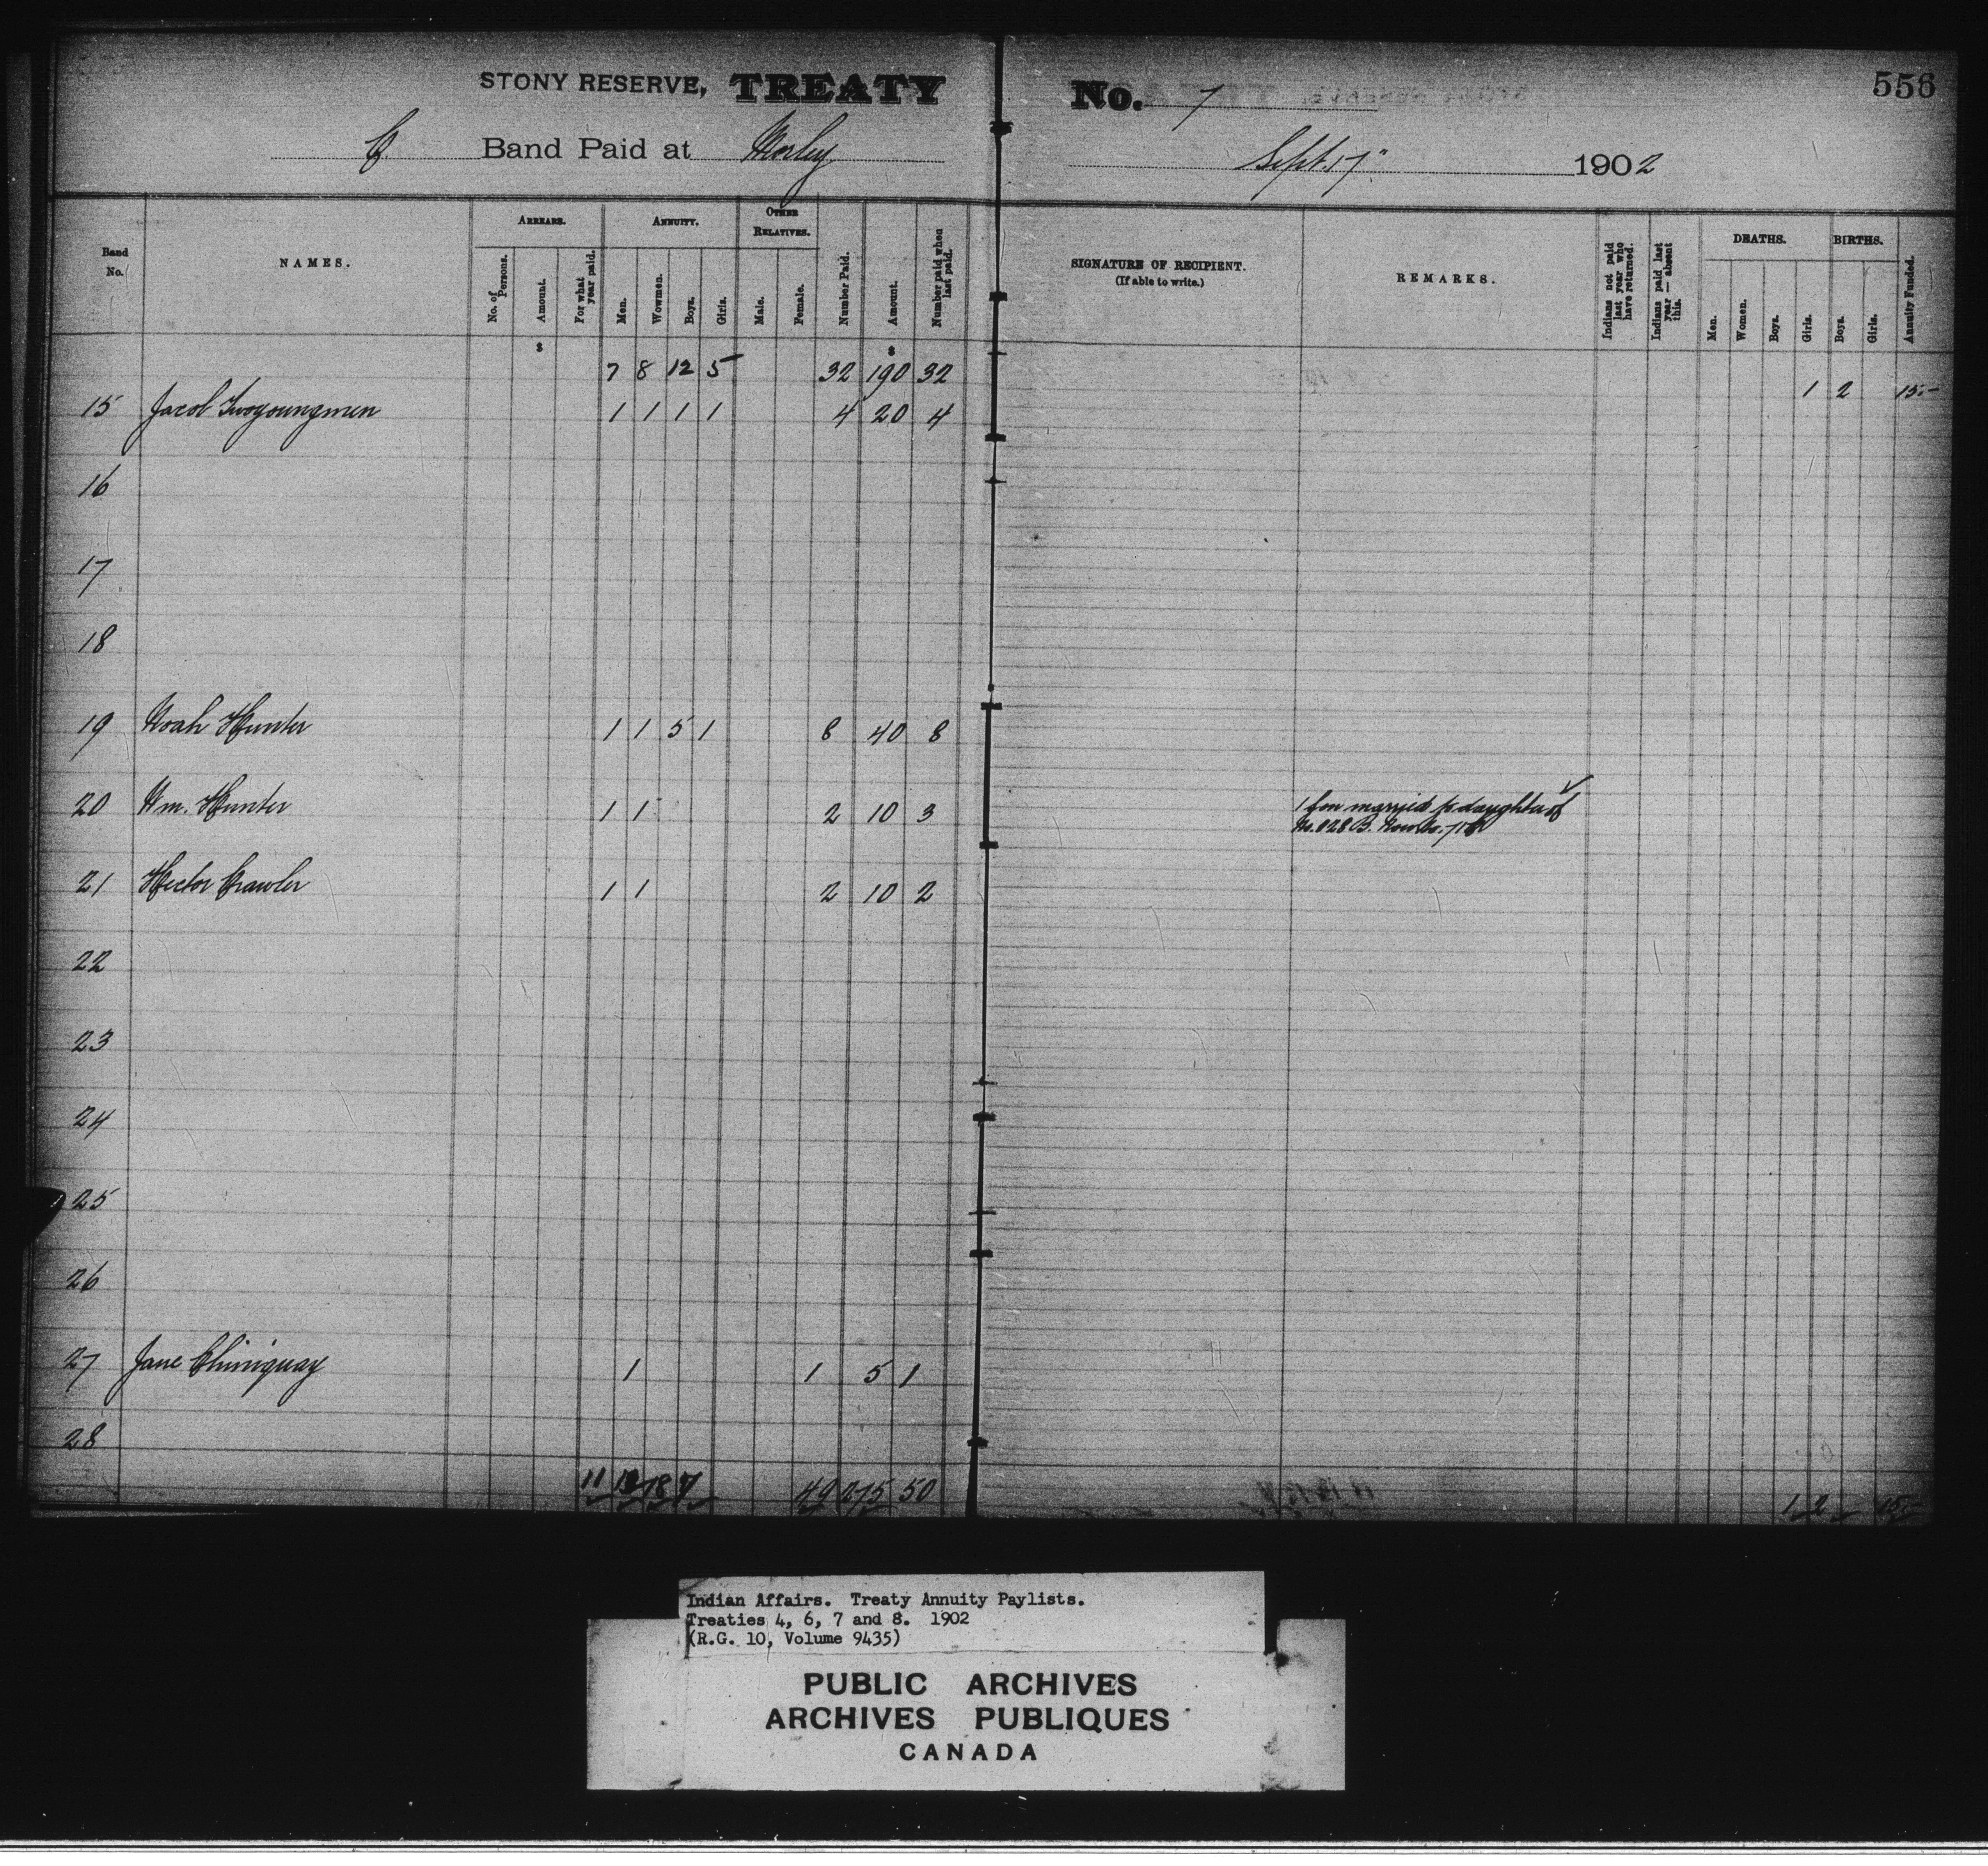 STONY RESERVE, TREATY No. 7 556
C Band Paid at Morley Sept. 17" 1902
Band No. NAMES. ARREARS. No. of Persons. Amount. For what year paid. ANNUITY. Men. Wowmen. Boys. Girls. OTHER RELATIVES. Male. Female. Number Paid. Amount. Number paid when last paid. SIGNATURE OF RECIPIENT. (If able to write.) REMARKS. Indians not paid last year who have returned. Indians paid last year — absent this. DEATHS. Men. Women. Boys. Girls. BIRTHS. Boys. Girls. Annuity Funded.
$ $
7 8 12 5 32 190 32 1 2 15.-
15 Jacob Twoyoungmen 1 1 1 1 4 20 4
16
17
18
19 Noah Hunter 1 1 5 1 8 40 8
20 Wm. Hunter 1 1 2 10 3 1 son married to daughter of
No. 828 B. Now No.
21 Hector Crawler 1 1 2 10 2
22
23
24
25
26
27 Jane Chiniquay 1 1 5 1
28
11 12 18 7 49 275 50 1 2 15.-
Indian Affairs. Treaty Annuity Paylists.
Treaties 4, 6, 7 and 8. 1902
(R.G. 10, Volume 9435)
PUBLIC ARCHIVES
ARCHIVES PUBLIQUES
CANADA